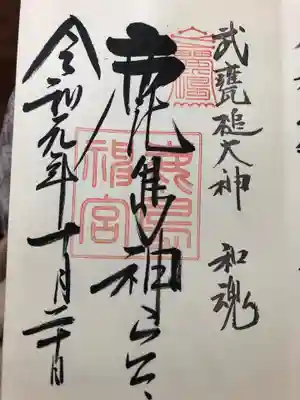 武甕槌大神　和魂
鹿島神宮
鹿島
神宮
令和元年十月二十日